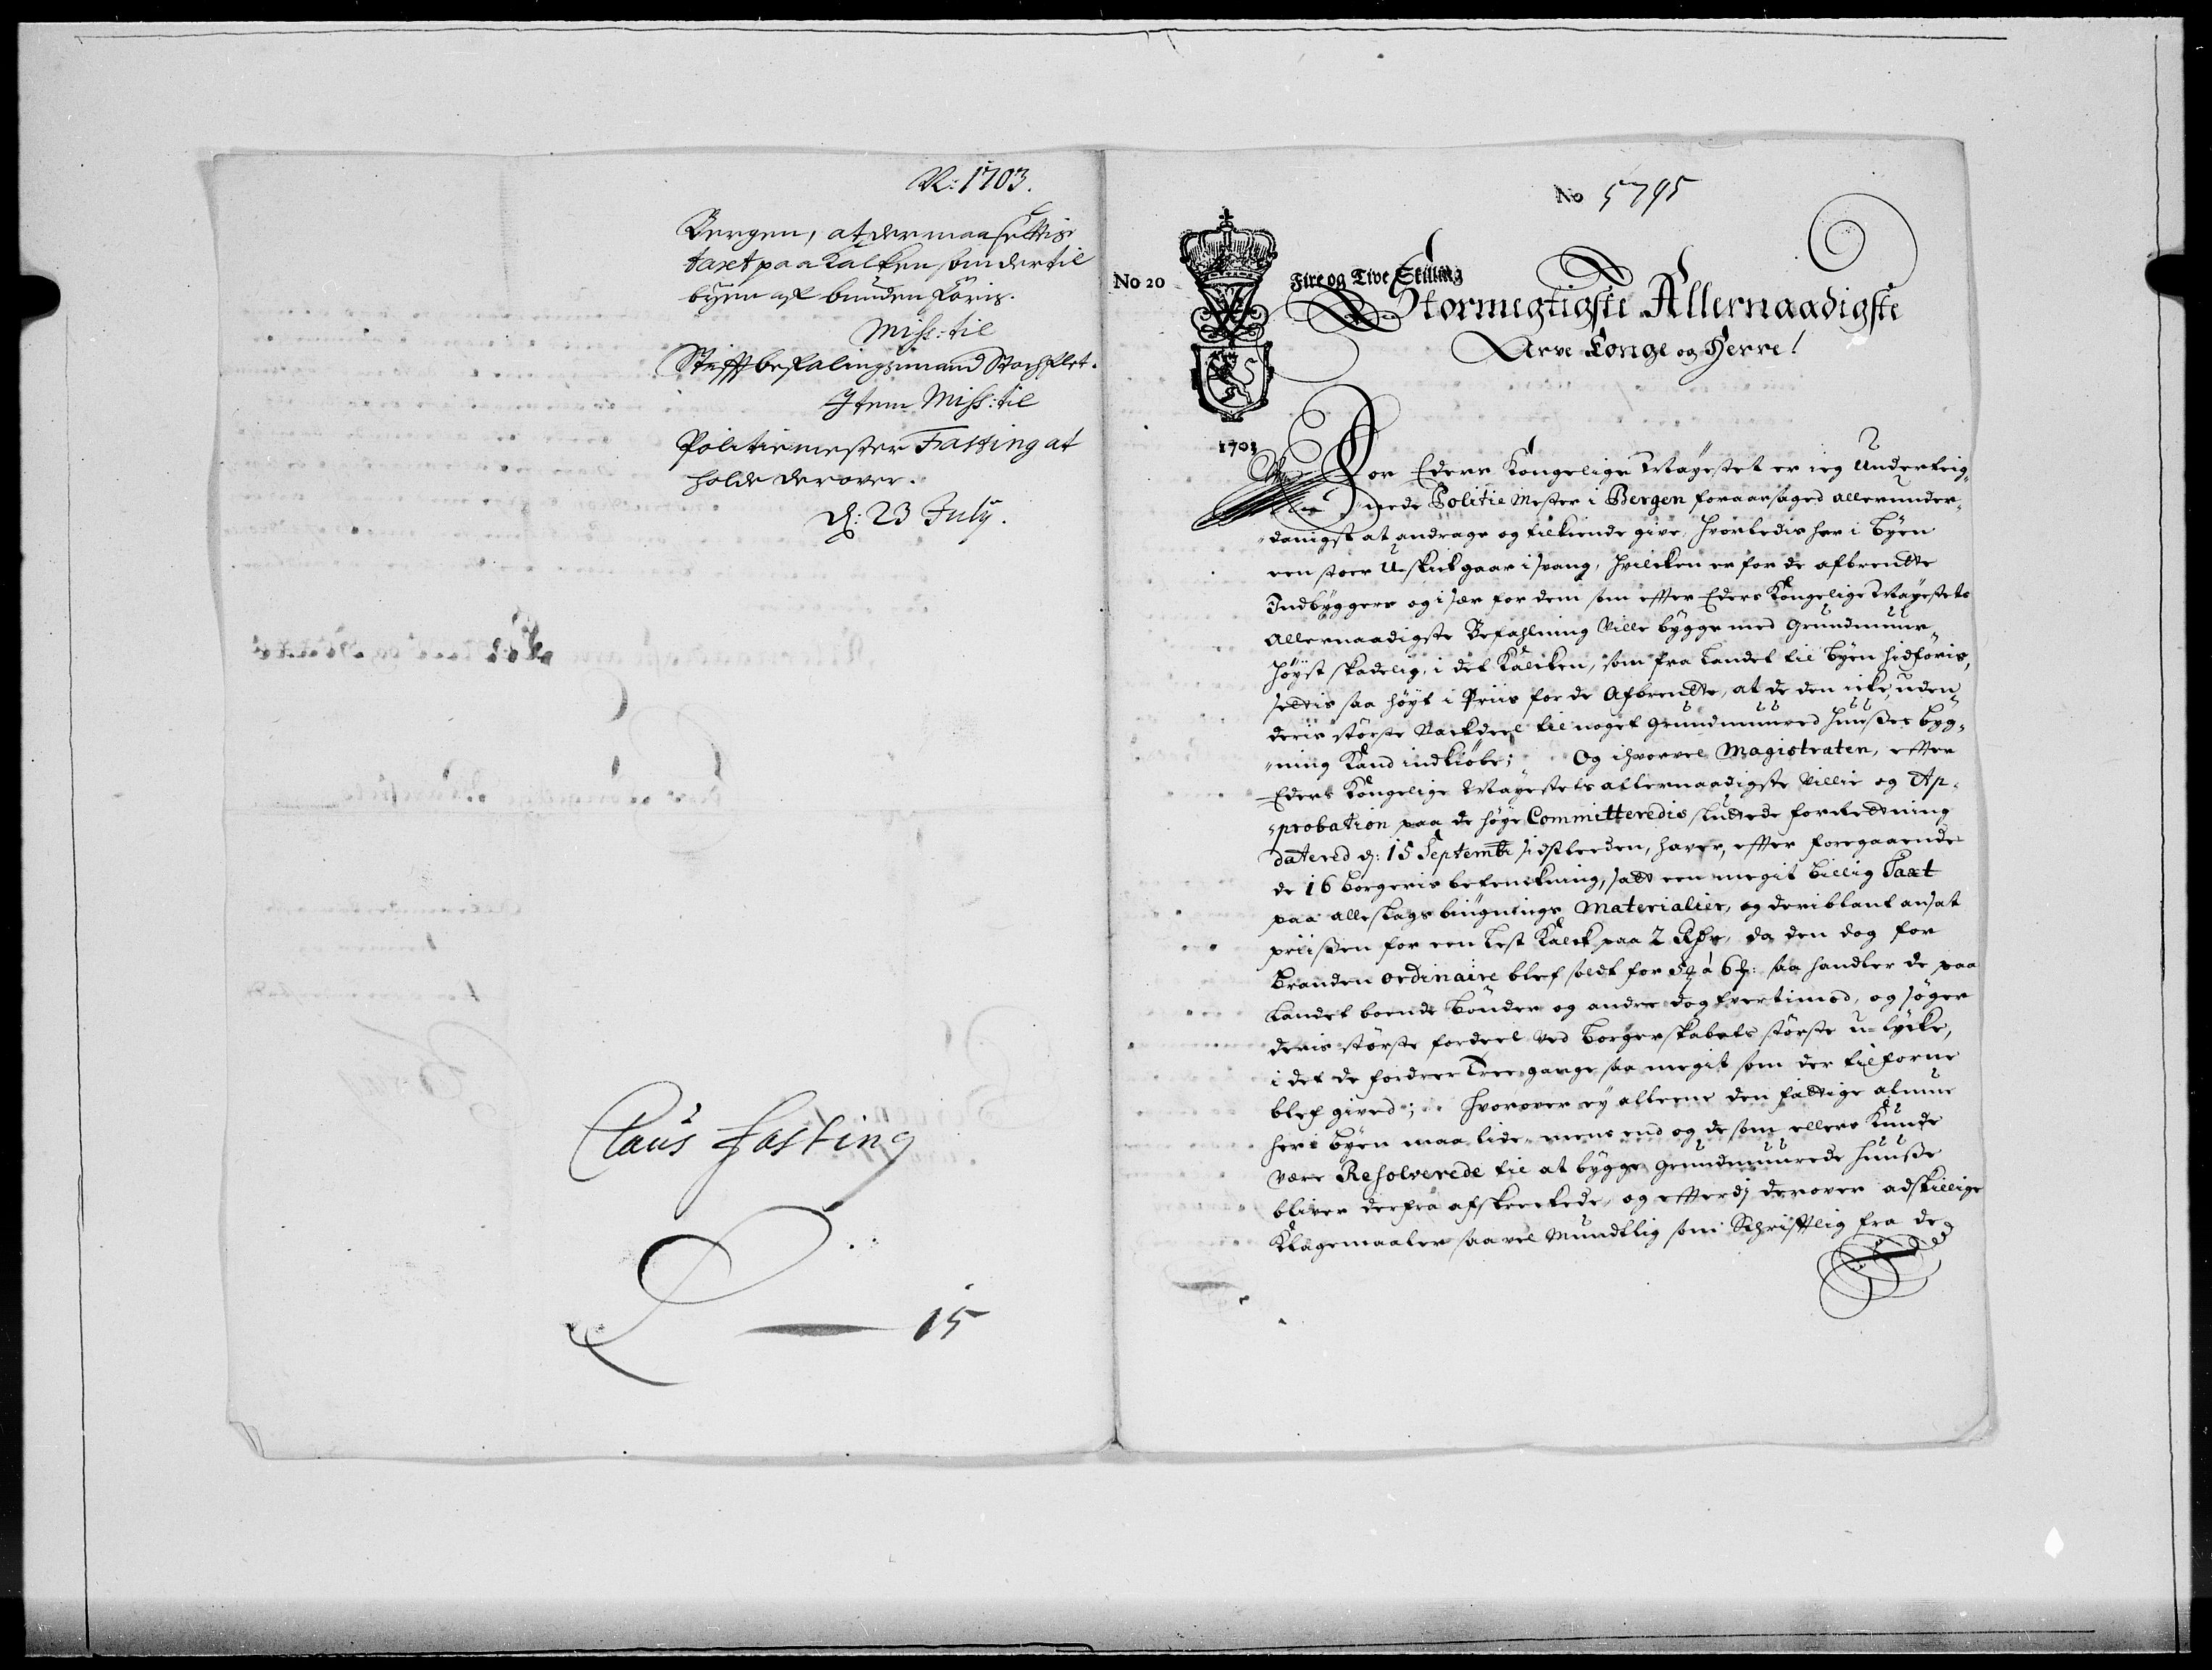 N: 1703.
Bergen, at der maa settis
taxt paa Kalken som der til
byen af bunden föris.
Miss: til
Stiftbefalingsmand Stochflet.
Item Miss: til
Politiemester Fasting at
holde derover.
d: 23 July.
Claus Fasting
15
No 5795
No 20
Fire og Tive Skilling
Stormegtigste Allernaadigste
Arve Konge og Herre!
1703
For Eders Kongelige Mayestet er ieg Underteig¸
nede Politie Mester i Bergen foraarsaged allerunder¸
danigst at andrage og tilkiende give, hvorledis her i Byen
een stoer U-skick gaar i svang, hvilcken er for de afbrendte
Indbyggere og i sær for dem som efter Eders Kongelige Mayestets
Allernaadigste Befahlning Ville bygge med Grundmuur
höyst skadelig, i det Kalcken, som fra Landet til Byen hidföris,
settis saa höyt i Priis for de Afbrendte, at de den icke uden
deris störste Nackdeel til noget Grundmuured Huusses Byg¸
ning Kand indkiöbe; Og ihvorvel Magistraten, efter
Eders Kongelige Mayestets allernaadigste Villie og Ap¸
probation paa de höye Committeredis sluttede forretning
datered d: 15 Septembr sidstleeden, haver, efter foregaaende
de 16 Borgeris betenckning, satt een megit billig Taxt
paa alleslags bügnings Materialier, og deriblant ansat
priissen for een Lest Kalck paa 2 Rdr, da den dog for
Branden ordinaire blef soldt for 5 a 6 : saa handler de paa
Landet boende Bönder og andre dog tvertimod, og söger
deris störste fordeel ved Borgerskabets störste u-lycke,
i det de fordrer Tree gange saa megit som der tilforne
blef gived; hvorover ey alleene den fattige almue
her i Byen maa lide, mens end og de som ellers Kunde
være Resolverede til at bygge Grundmuurede Huusse
bliver derfra afskreckede, og efterdj derover adskillige
Klagemaaler saavel Mundtlig som Schriftlig fra de